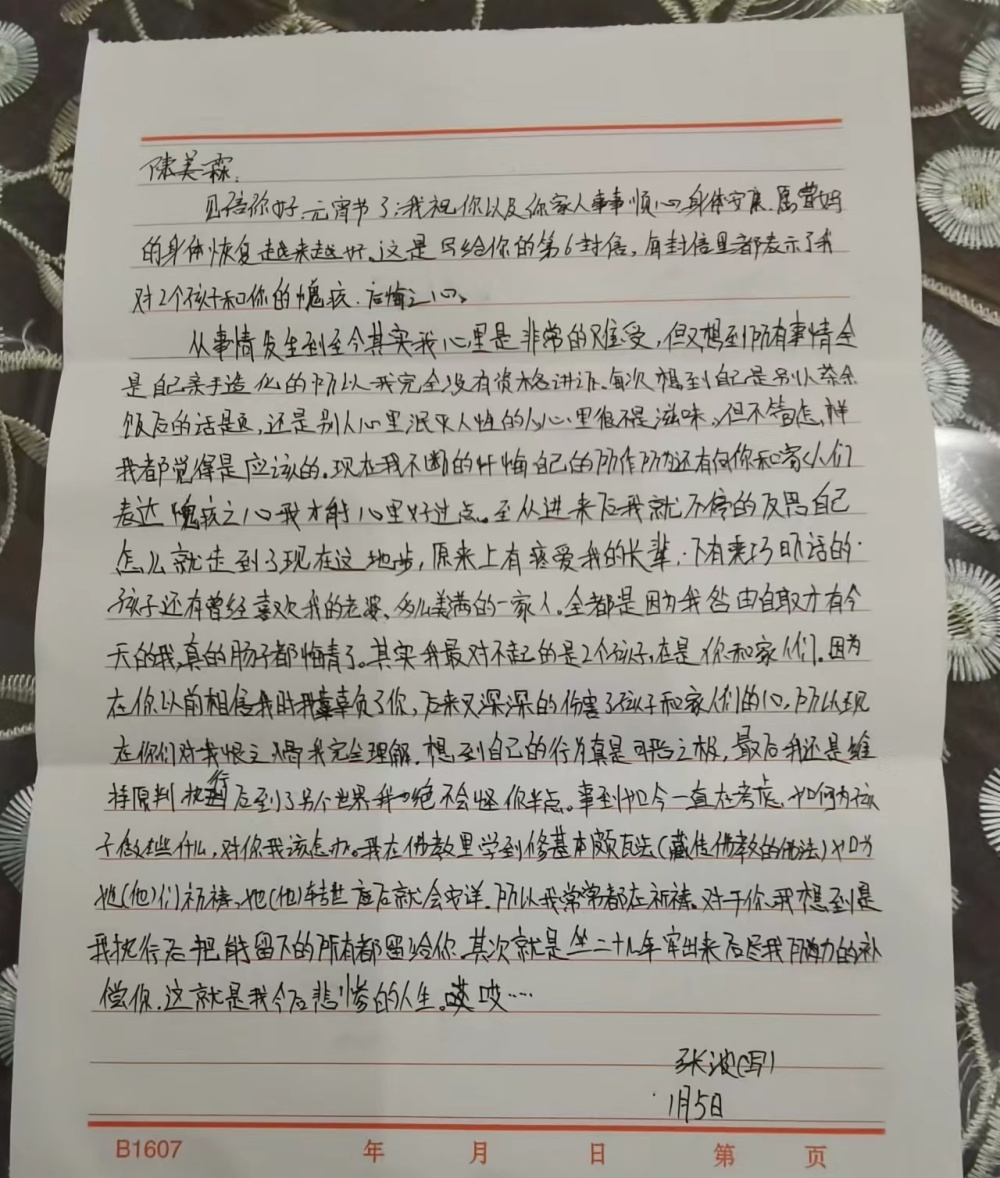 陈美霖:
见信你好,元宵节了,我祝你以及你家人事事顺心,身体安康.愿曾妈
的身体恢复越来越好.这是写给你的第6封信,每封信里都表示了我
对2个孩子和你的愧疚.后悔之心。
从事情发生到至今其实我心里是非常的难受,但又想到所有事情全
是自己亲手造化的所以我完全没有资格讲诉.每次想到自己是别人茶余
饭后的话是,还是别人心里泯灭人性的人心里很不是滋味,但不管怎么样
我都觉得是应该的.现在我不断的忏悔自己的所作所为还有向你和家人们
表达愧疚之心我才能心里好过点。至从进来后我就不停的反思自己
怎么就走到了现在这地步,原来上有疼爱我的长辈.下有乖巧听话的
孩子还有曾经喜欢我的老婆、多么美满的一家人.全都是因为我咎由自取才有今
天的我,真的肠子都悔青了。其实我最对不起的是2个孩子,在是你和家人们.因为
在你以前相信我时我辜负了你,后来又深深的伤害了孩子和家人们的心,所以现
在你们对我恨之入骨我完全理解.想到自己的行为真是可悲之极,最后我还是维
持原判执行后到了另个世界我也绝不会怪你半点。事到如今一直在考虑.如何为孩
子做些什么,对你我该怎办。我在佛教里学到修基本颇瓦法(藏传佛教的佛法)如为
她(他)们祈祷,她(他)转世应后就会安详.所以我常常都在祈祷.对于你我想到是
我执行后把能留下的所有都留给你.其次就是坐二十九年牢出来后尽我所能力的补
偿你.这就是我今后悲惨的人生。哎哎····
张波(写)
1月5日
B1607 年 月 日 第 页